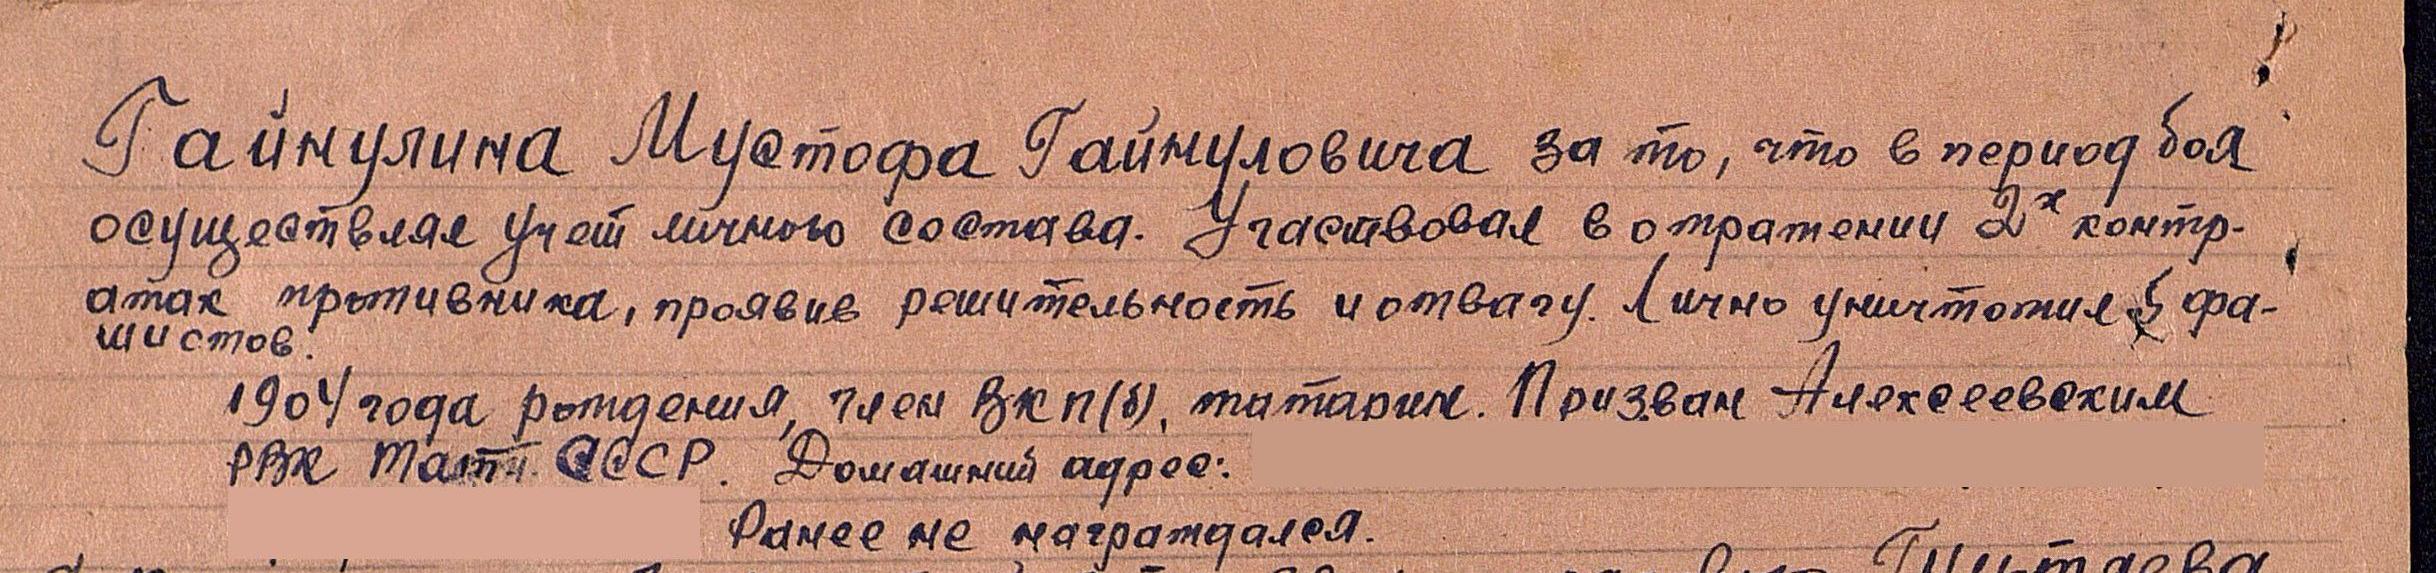 Гайнулина Мустофа Гайнуловича за то, что в период боя
осуществлял учет личного состава. Участвовал в отражении 2х контр-
атак противника, проявив решительность и отвагу. Лично уничтожил 5 фа-
шистов.
1904 года рождения, член ВКП(б), татарин. Призван Алексеевским
РВК Тат. АССР. Домашний адрес:
Ранее не награждался.